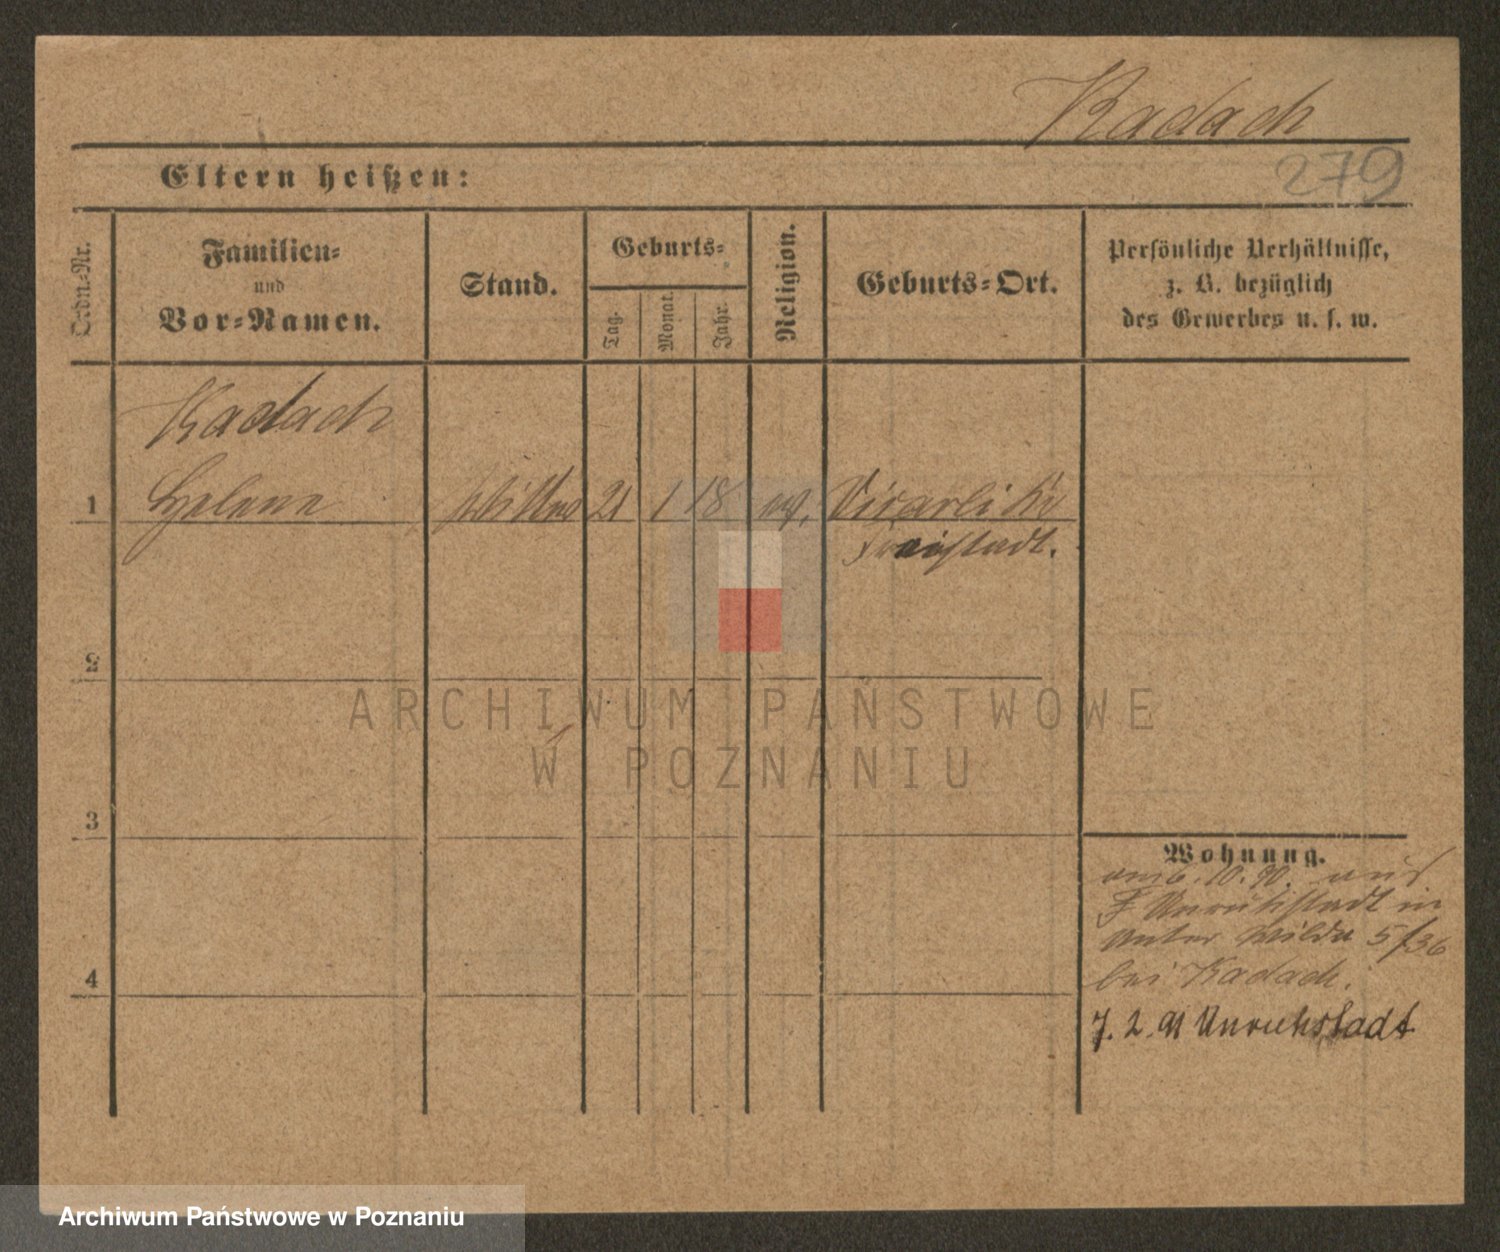 Kadach
279
Eltern heißen:
Ordn.-Nr.
Familien-
und
Vor-Namen.
Stand.
Geburts-
Tag.
Monat.
Jahr.
Religion.
Geburts-Ort.
Persönliche Verhältnisse,
z. B. bezüglich
des Gewerbes u. s. w.
Kadach
1 Helene 21 1 18
Freistadt.
2
ARCHIWUM PAŃSTWOWE
W POZNANIU
3
Wohnung.
am 6. 10. 90. aus
Unruhstadt in
Unter Wilda 5/36
4
bei Kadach.
7. 2. 91 Unruhstadt
Archiwum Państwowe w Poznaniu